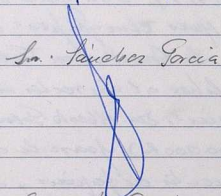 Sr. Sánchez García